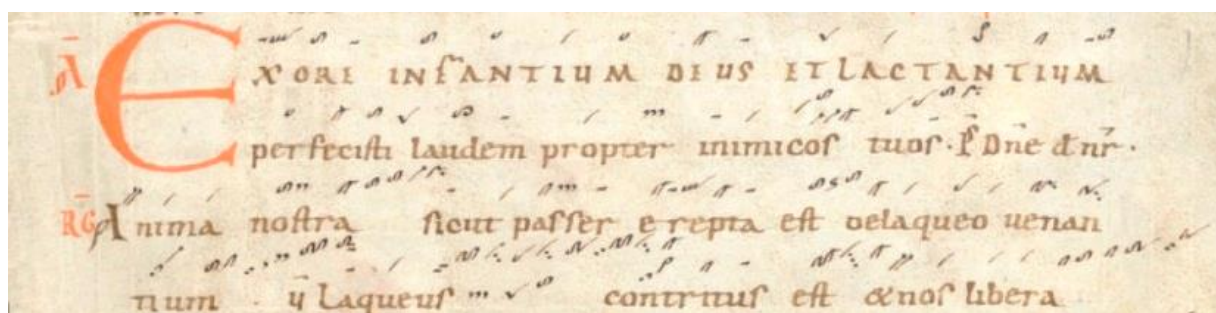 A EX ORE INFANTIUM DEUS ET LACTANTIUM
perfecisti laudem propter inimicos tuos. Ps Dn̄e d̄ nr̄.
RG Anima nostra sicut passer erepta est delaqueo uenan
tium v̄ Laqueus contritus est &nos libera